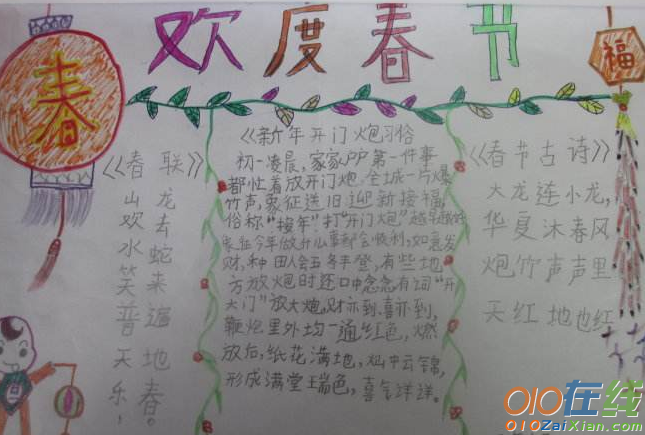 欢度春节
春
福
《春联》
龙去蛇来遍地春。
山欢水笑普天乐,
《新年开门炮习俗
初一凌晨,家家户户第一件事
都忙着放开门炮,全城一片爆
竹声,象征送旧迎新接福,
俗称“接年”打“开门炮”越早越好
象征今年做什么事都会顺利,如意发
财,种田人会五谷丰登,有些地
方放炮时还口中念念有词“开
大门”放大炮,财亦到,喜亦到,
鞭炮里外均一通红色,燃
放后,纸花满地,灿中云锦,
形成满堂瑞色,喜气洋洋。
《春节古诗》
大龙连小龙,
华夏沐春风
炮竹声声里
天红地也红
010在线
010ZaiXian.com